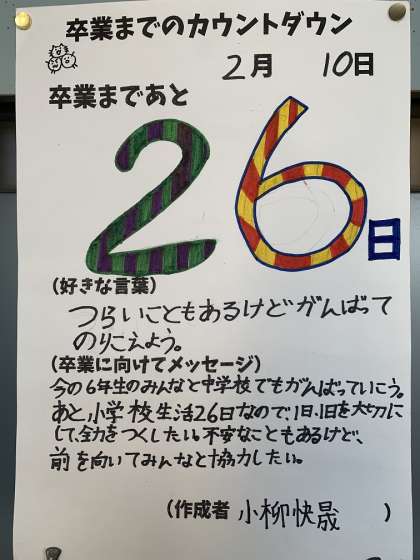 卒業までのカウントダウン
2月 10日
卒業まであと
26日
(好きな言葉)
つらいこともあるけどがんばって
のりこえよう。
(卒業に向けてメッセージ)
今の6年生のみんなと中学校でもがんばっていこう。
あと、小学校生活26日なので、1日、1日を大切に
して、全力をつくしたい。不安なこともあるけど、
前を向いてみんなと協力したい。
(作成者 小柳快晟 )